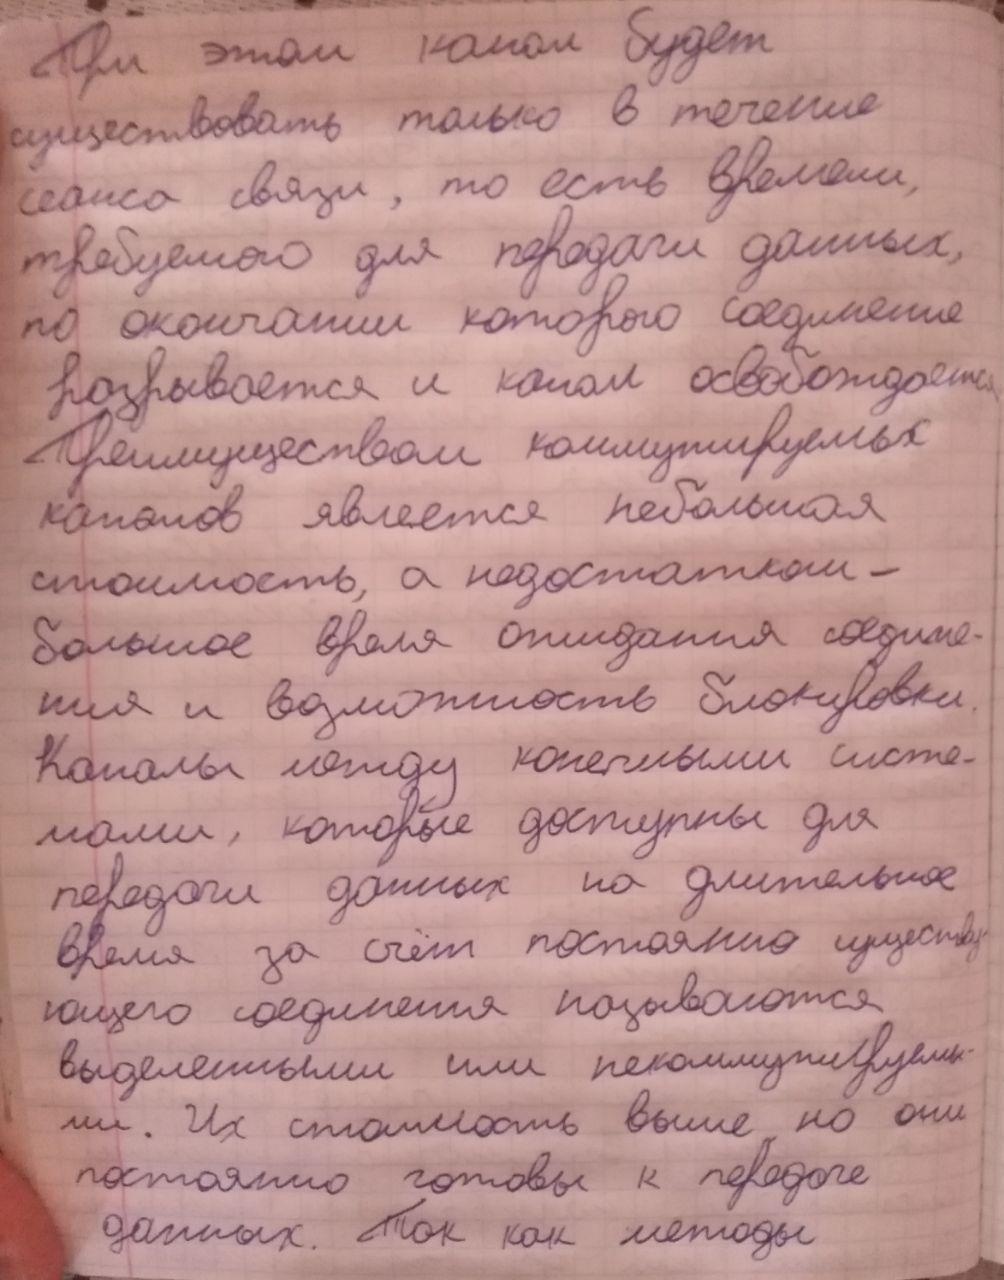 При этом канал будет
существовать только в течение
сеанса связи, то есть времени,
требуемого для передачи данных,
по окончании которого соединение
разрывается и канал освобождается
Преимуществом коммутируемых
каналов является небольшая
стоимость, а недостатком –
большое время ожидания соедине-
ния и возможность блокировки.
Каналы между конечными систе-
мами, которые доступны для
передачи данных на длительное
время за счёт постоянно существу-
ющего соединения называются
выделенными или некоммутируемы-
ми. Их стоимость выше, но они
постоянно готовы к передаче
данных. Так как методы